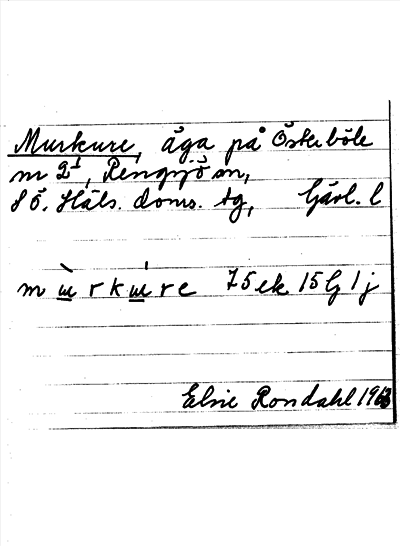 Murkure, äga på Österböle
m 2¹, Rengsjö sn,
s Ö. Häls. doms. tg, Gävl. l
m ɯ̀ r k ɯ́ r e 75 ek 15 G 1 j
Elsie Rondahl 1963